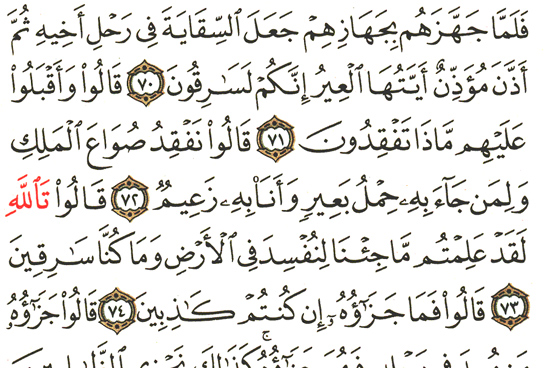 فَلَمَّا جَهَّزَهُم بِجَهَازِهِمْ جَعَلَ ٱلسِّقَايَةَ فِى رَحْلِ أَخِيهِ ثُمَّ
أَذَّنَ مُؤَذِّنٌ أَيَّتُهَا ٱلْعِيرُ إِنَّكُمْ لَسَـٰرِقُونَ ٧٠ قَالُوا۟ وَأَقْبَلُوا۟
عَلَيْهِم مَّاذَا تَفْقِدُونَ ٧١ قَالُوا۟ نَفْقِدُ صُوَاعَ ٱلْمَلِكِ
وَلِمَن جَآءَ بِهِۦ حِمْلُ بَعِيرٍ وَأَنَا۠ بِهِۦ زَعِيمٌ ٧٢ قَالُوا۟ تَٱللَّهِ
لَقَدْ عَلِمْتُم مَّا جِئْنَا لِنُفْسِدَ فِى ٱلْأَرْضِ وَمَا كُنَّا سَـٰرِقِينَ
٧٣ قَالُوا۟ فَمَا جَزَٰٓؤُهُۥٓ إِن كُنتُمْ كَـٰذِبِينَ ٧٤ قَالُوا۟ جَزَٰٓؤُهُۥ